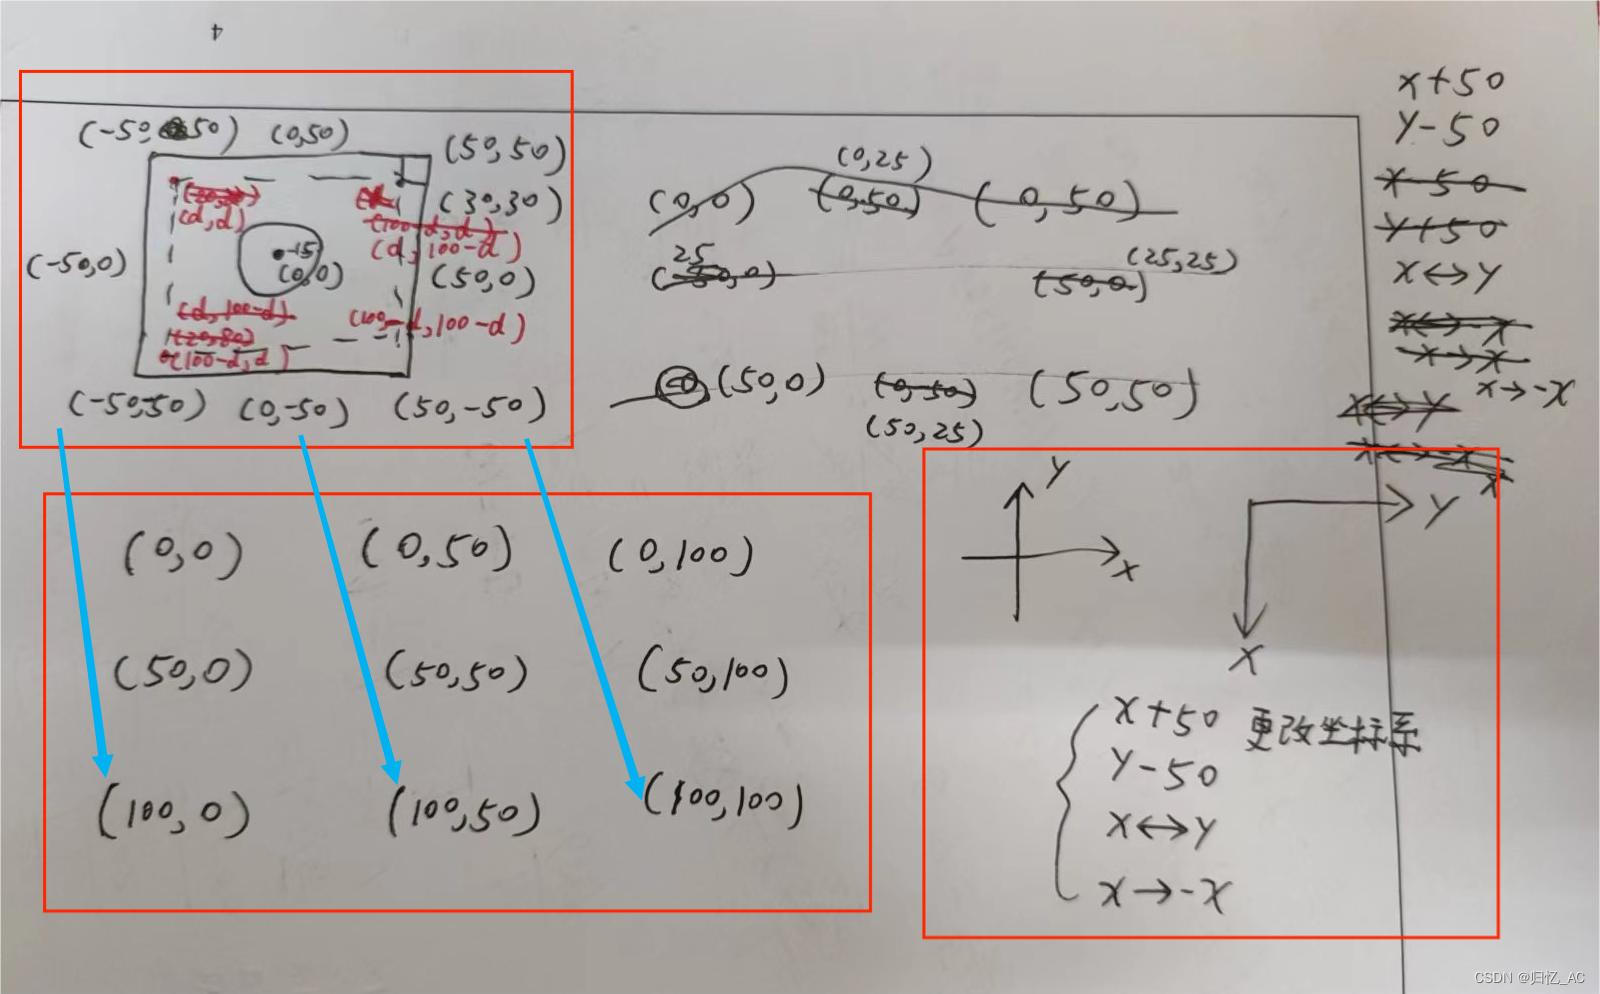 4
(-50,50) (0,50) (50,50)
(30,30)
(d,d)
(100-d,d)
(d,100-d)
(-50,0) -15 (0,0) (50,0)
(d,100-d)
(100-d,100-d)
(20,80)
(100-d,d)
(-50,-50) (0,-50) (50,-50)
(0,25)
(0,0) (0,50) (0,50)
25 (25,25)
(50,0)
(50,0) (0,-50) (50,50)
(50,25)
x+50
y-50
x-50
y+50
x↔y
x→x
x→-x
x↔y
(0,0) (0,50) (0,100)
(50,0) (50,50) (50,100)
(100,0) (100,50) (100,100)
y
x
y
x
x+50 更改坐标系
y-50
x↔y
x→-x
CSDN @归忆_AC